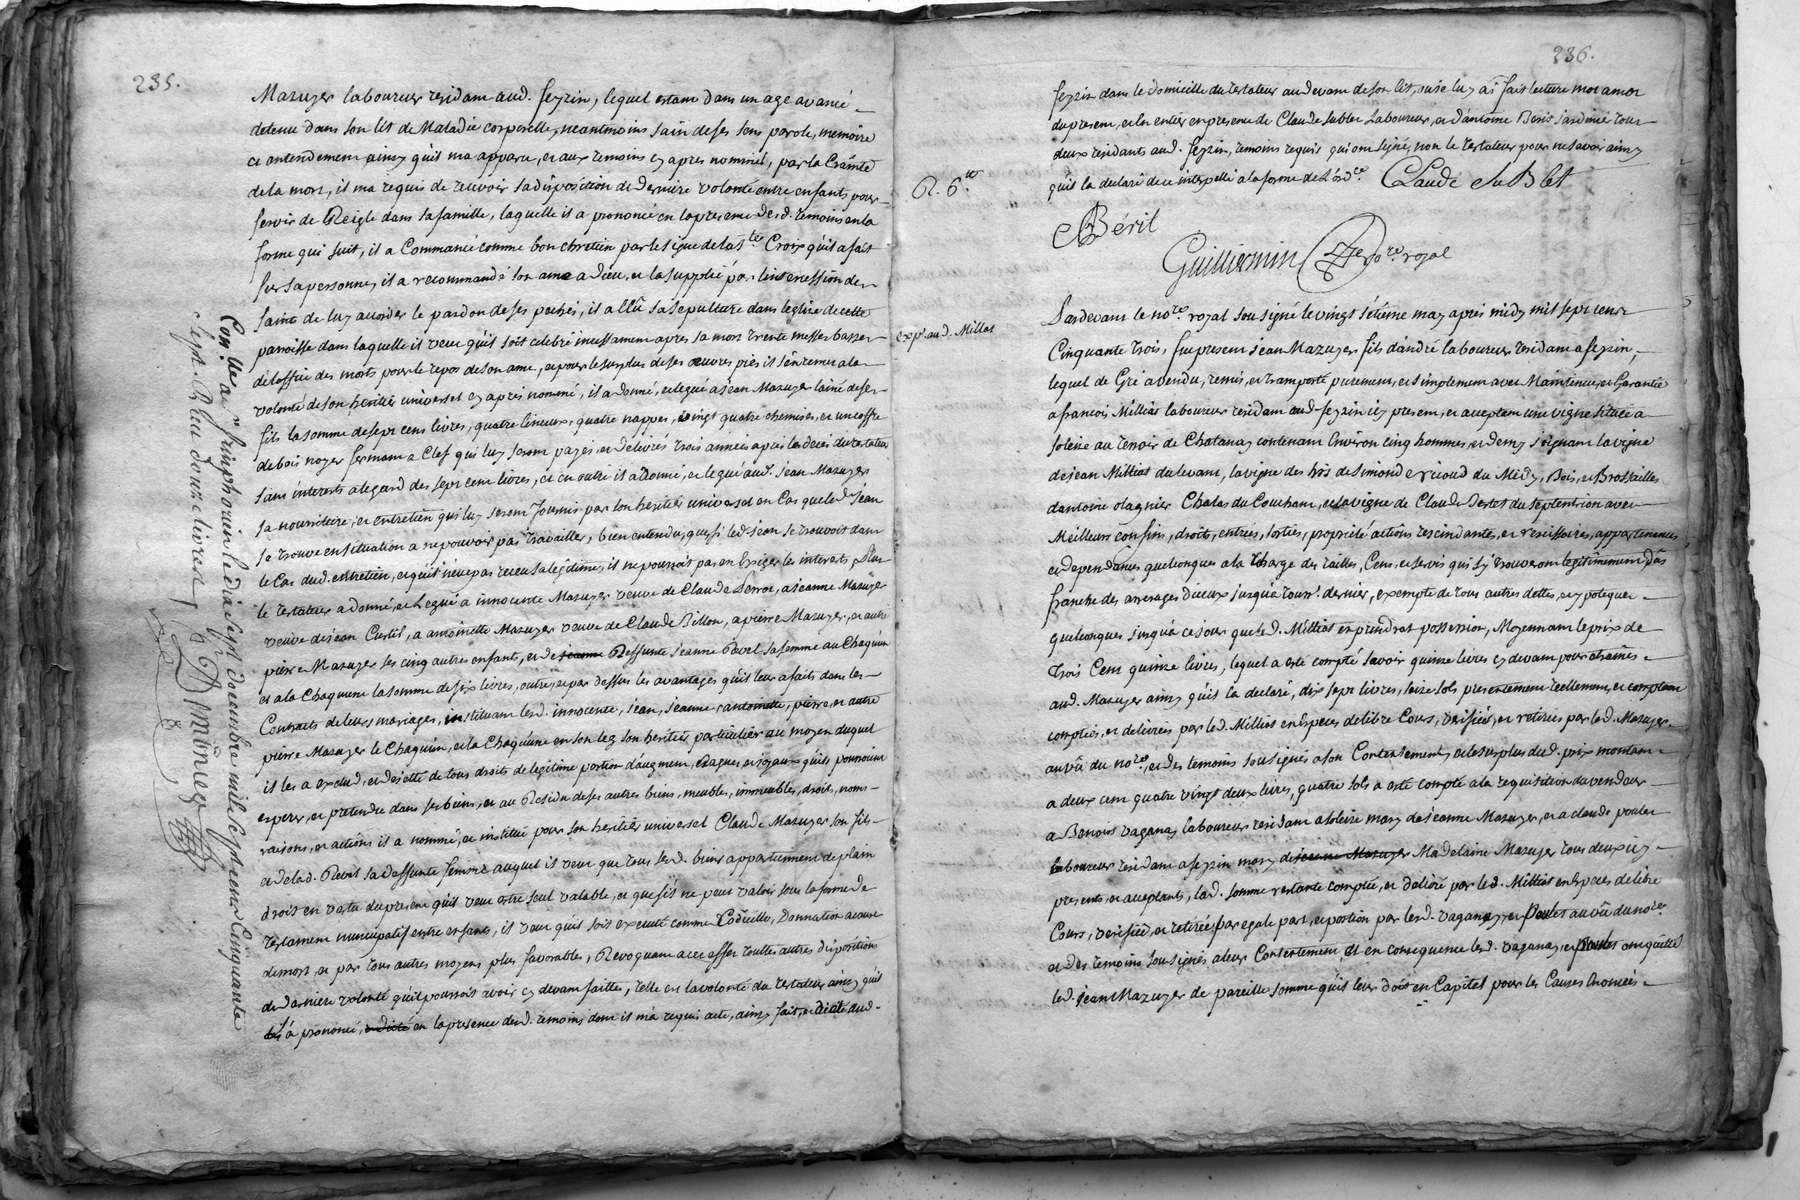 235.
Mazuyer laboureur residant aud. feyzin, lequel estant dans un age avancé
detenu dans son lit de Maladie corporelle, neantmoins sain de ses sens parole, memoire
et entendement ainsy qu'il ma apparu, et aux temoins cy apres nommés, par la Crainte
de la mort, il ma requi de recevoir sa disposition de derniere volonté entre enfants pour
servir de Reigle dans sa famille, laquelle il a prononcé en la presence desd. temoins en la
forme qui suit, il a Commancé comme bon chretien par le signe de la ste Croix qu'il a fait
sur sa personne, il a recommandé son ame a Dieu, et la supplié par l'intercession des
saints de luy accorder le pardon de ses pechés, il a ellû sa sepulture dans leglise de cette
parroisse dans laquelle il veut qu'il soit celebré incessament apres sa mort trente messes basses
de l'office des morts pour le repos de son ame, et pour le surplus de ses œuvres pies il s'en remet a la
volonté de son heritier universel cy apres nommé, il a donné, et legué a jean Mazuyer lainé de ses
fils la somme de sept cens livres, quatre linceux, quatre nappes, vingt quatre chemises, et un coffre
de bois noyer fermant a Clef qui luy seront payés et delivrés trois années apres le deces du testateur
sans interests a legard des sept cent livres, et en outre il a donné, et legué aud. jean Mazuyer
sa nourriture, et entretien qui luy seront fournis par son heritier universel en Cas que led. jean
se trouve en situation a ne pouvoir pas travailler, bien entendu, que si led. jean se trouvoit dans
le Cas dud. entretien, et qu'il n'eut pas receu sa legitime, il ne pourroit pas en Exiger les interests, Plus
le testateur a donné, et Legué a innocente Mazuyer veuve de Claude Perrot, a jeanne Mazuyer
veuve de jean Curtil, a antoinette Mazuyer veuve de Claude Billon, a pierre Mazuyer, et autre
pierre Mazuyer ses cinq autres enfants, et de jeanne Deffunte jeanne Revol sa femme au Chaquun
et a la Chaquune la somme de six livres, outre, et par dessus les avantages qu'il leur a faits dans les
Contracts de leurs mariages, instituant lesd. innocente, jean, jeanne, antoinette, pierre, et autre
pierre Mazuyer le Chaquun, et la Chaquune en son leg son heritier particulier au moyen duquel
il les a exclud, et dejetté de tous droits de legitime portion d'augment, Bagues et joyaux qu'ils pourroient
esperer, et pretendre dans ses biens, et au Residu de ses autres biens, meubles, immeubles, droits, noms
raisons, et actions il a nommé, et institué pour son heritier universel Claude Mazuyer son fils
et de lad. Revol sa deffunte femme auquel il veut que tous sesd. biens appartiennent de plain
droit en vertu du present qu'il veut estre seul valable, et que s'il ne peut valoir sous la forme de
testament nuncupatif entre enfans, il veut qu'il soit executé comme Codicille, Donnation a cause
de mort, et par tous autres moyens plus favorables, Revoquant a cet effet touttes autres dispositions
de derniere volonté qu'il pourroit avoir cy devant faittes, telle est la volonté du testateur ainsy qu'il
la a prononcé, et dicté en la presence desd. temoins dont il ma requi acte, ainsy fait, et dicté aud.
Con.lle a St Simphorien le dix sept decembre mil sept cent Cinquante
sept. Reçu douze livres
236.
feyzin dans le domicille du testateur au devant de son lit, ou je luy ai fait lecture mot a mot
du present, et en entier en presence de Claude sublet Laboureur, et d'antoine Berit jardinier tous
deux residants aud. feyzin, temoins requis qui ont signés, non le testateur pour ne savoir ainsy
qu'il la declaré de ce interpellé a la forme de l'ord.ce Claude SuBlet
R. 6.tt
ABérit
Guilliermin No.re royal
exp.é aud. Milliat
Pardevant le no.re royal sousigné le vingt sétieme may apres midy mil sept cens
Cinquante trois, fut present jean Mazuyer fils d'andré laboureur residant a feyzin,
lequel de Gré a vendu, remis, et transporté purement, et simplement avec Maintenue, et Garantie
a francois Milliat laboureur residant aud. feyzin icy present, et acceptant une vigne située a
soleize au terroir de Chatanay contenant Environ cinq hommes, et demy joignant la vigne
de jean Milliat du levant, la vigne des hoirs de simond du Midy, Bois, et Brossailles
d'antoine olagnier Chalas du Couchant, et la vigne de Claude Sertet du septentrion avec
Meilleurs confins, droits, entrées, sorties, proprieté actions rescindantes, et resisoires, appartenances,
et dependances quelconques a la Charge des tailles, Cens, et servis qui s'y trouveront legitimement dûs
franche des arrerages d'iceux jusqu'a tous.t dernier, exempte de tous autres dettes, et ypoteques
quelconques jusqu'a ce jour que led. Milliat en prendrat possession, Moyennant le prix de
trois Cens quinze livres, lequel a esté compté savoir quinze livres cy devant pour etraines
aud. Mazuyer ainsy qu'il la declaré, dix sept livres, seize sols presentement reellement, et comptant
comptés, et delivrés par led. Milliat en Especes de libre Cours, verifiées, et retirées par led. Mazuyer
au vû du no.re, et des temoins sousignés a son Contentement, et le surplus dud. prix montant
a deux cent quatre vingt deux livres, quatre sols a esté compté a la requisition du vendeur
a Benoist vaganay laboureur residant a soleize mary de jeanne Mazuyer, et a claude poulet
laboureur residant a feyzin mary de jeanne Mazuyer Madelaine Mazuyer tous deux icy
presents, et acceptants, lad. somme restante comptée, et deliré par led. Milliat en Especes de libre
Cours, verifiée, et retirée par egale part, et portion par lesd. vaganay, et Poulet au vû du no.re
et des temoins sousignés a leur Contentement, et en consequence lesd. vaganay, et Poulet ont quitté
led. jean Mazuyer de pareille somme qu'il leur doit en Capital pour les Causes énoncées